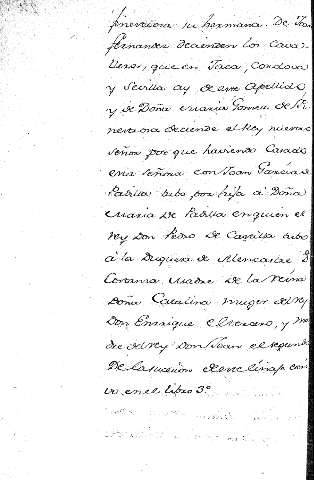 finestrosa su hermana. De Joan
fernandez decienden los Cava-
lleros, que en Jaca, Cordova
y Sevilla ay de este Apellido,
y de Doña Maria Gomez de Fi-
nestrosa deciende el Rey nuestro
Señor por que haviendo Casado
esta Señora con Joan Garcia de
Padilla tubo por hija á Doña
Maria de Padilla en quien el
Rey Don Pedro de Castilla tubo
á la Duquesa de Alencastre D.
Costanza Madre de la Reina
Doña Catalina muger del Rey
Don Enrrique el tercero, y ma
dre del Rey Don Joan el segundo
De la sucesion de este linaje
vo en el libro 3º